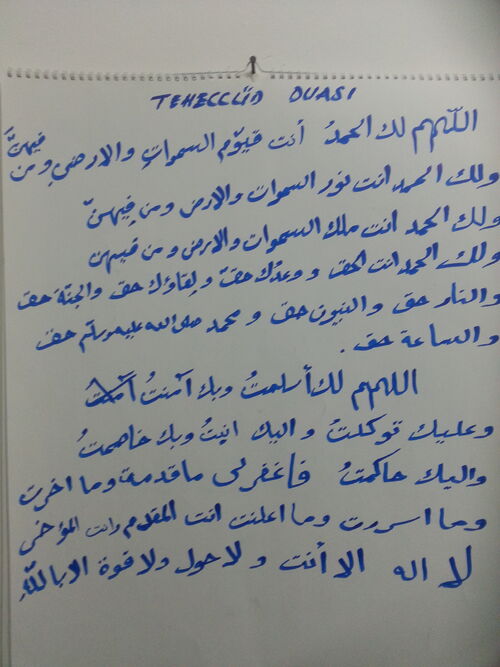 TEHECCÜD DUASI
اللّهم لك الحمدُ أنت قيّوم السموات والارضِ ومن فيهنَّ
ولك الحمد انت نور السموات والارض ومن فيهنّ
ولك الحمد انت ملك السموات والارض ومن فيهن
ولك الحمد انت الحق ووعدك حقّ ولقاؤك حق والجنّة حق
والنار حق والنبيون حق ومحمد صلى الله عليه وسلّم حق
والساعة حق.
اللهم لك أسلمتُ وبك آمنتُ
وعليك توكلتُ واليك انبتُ وبك خاصمتُ
واليك حاكمتُ فاغفرلى ماقدمة وما اخرت
وما اسررت وما اعلنت انت المقدم وانت المؤخر
لا اله الا أنت ولا حول ولا قوة الا باللّهِ